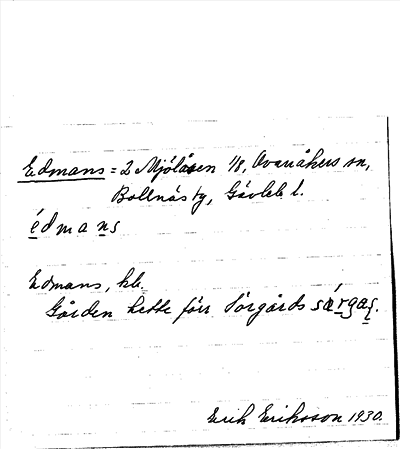 Edmans = 2 Mjölåsen 1/8, Ovanåkers sn,
Bollnäs tg, Gävleb l.
édmans
Edmans, kb.
Gården hette förr Sörgårds sǽrgaş.
Erik Eriksson 1930.